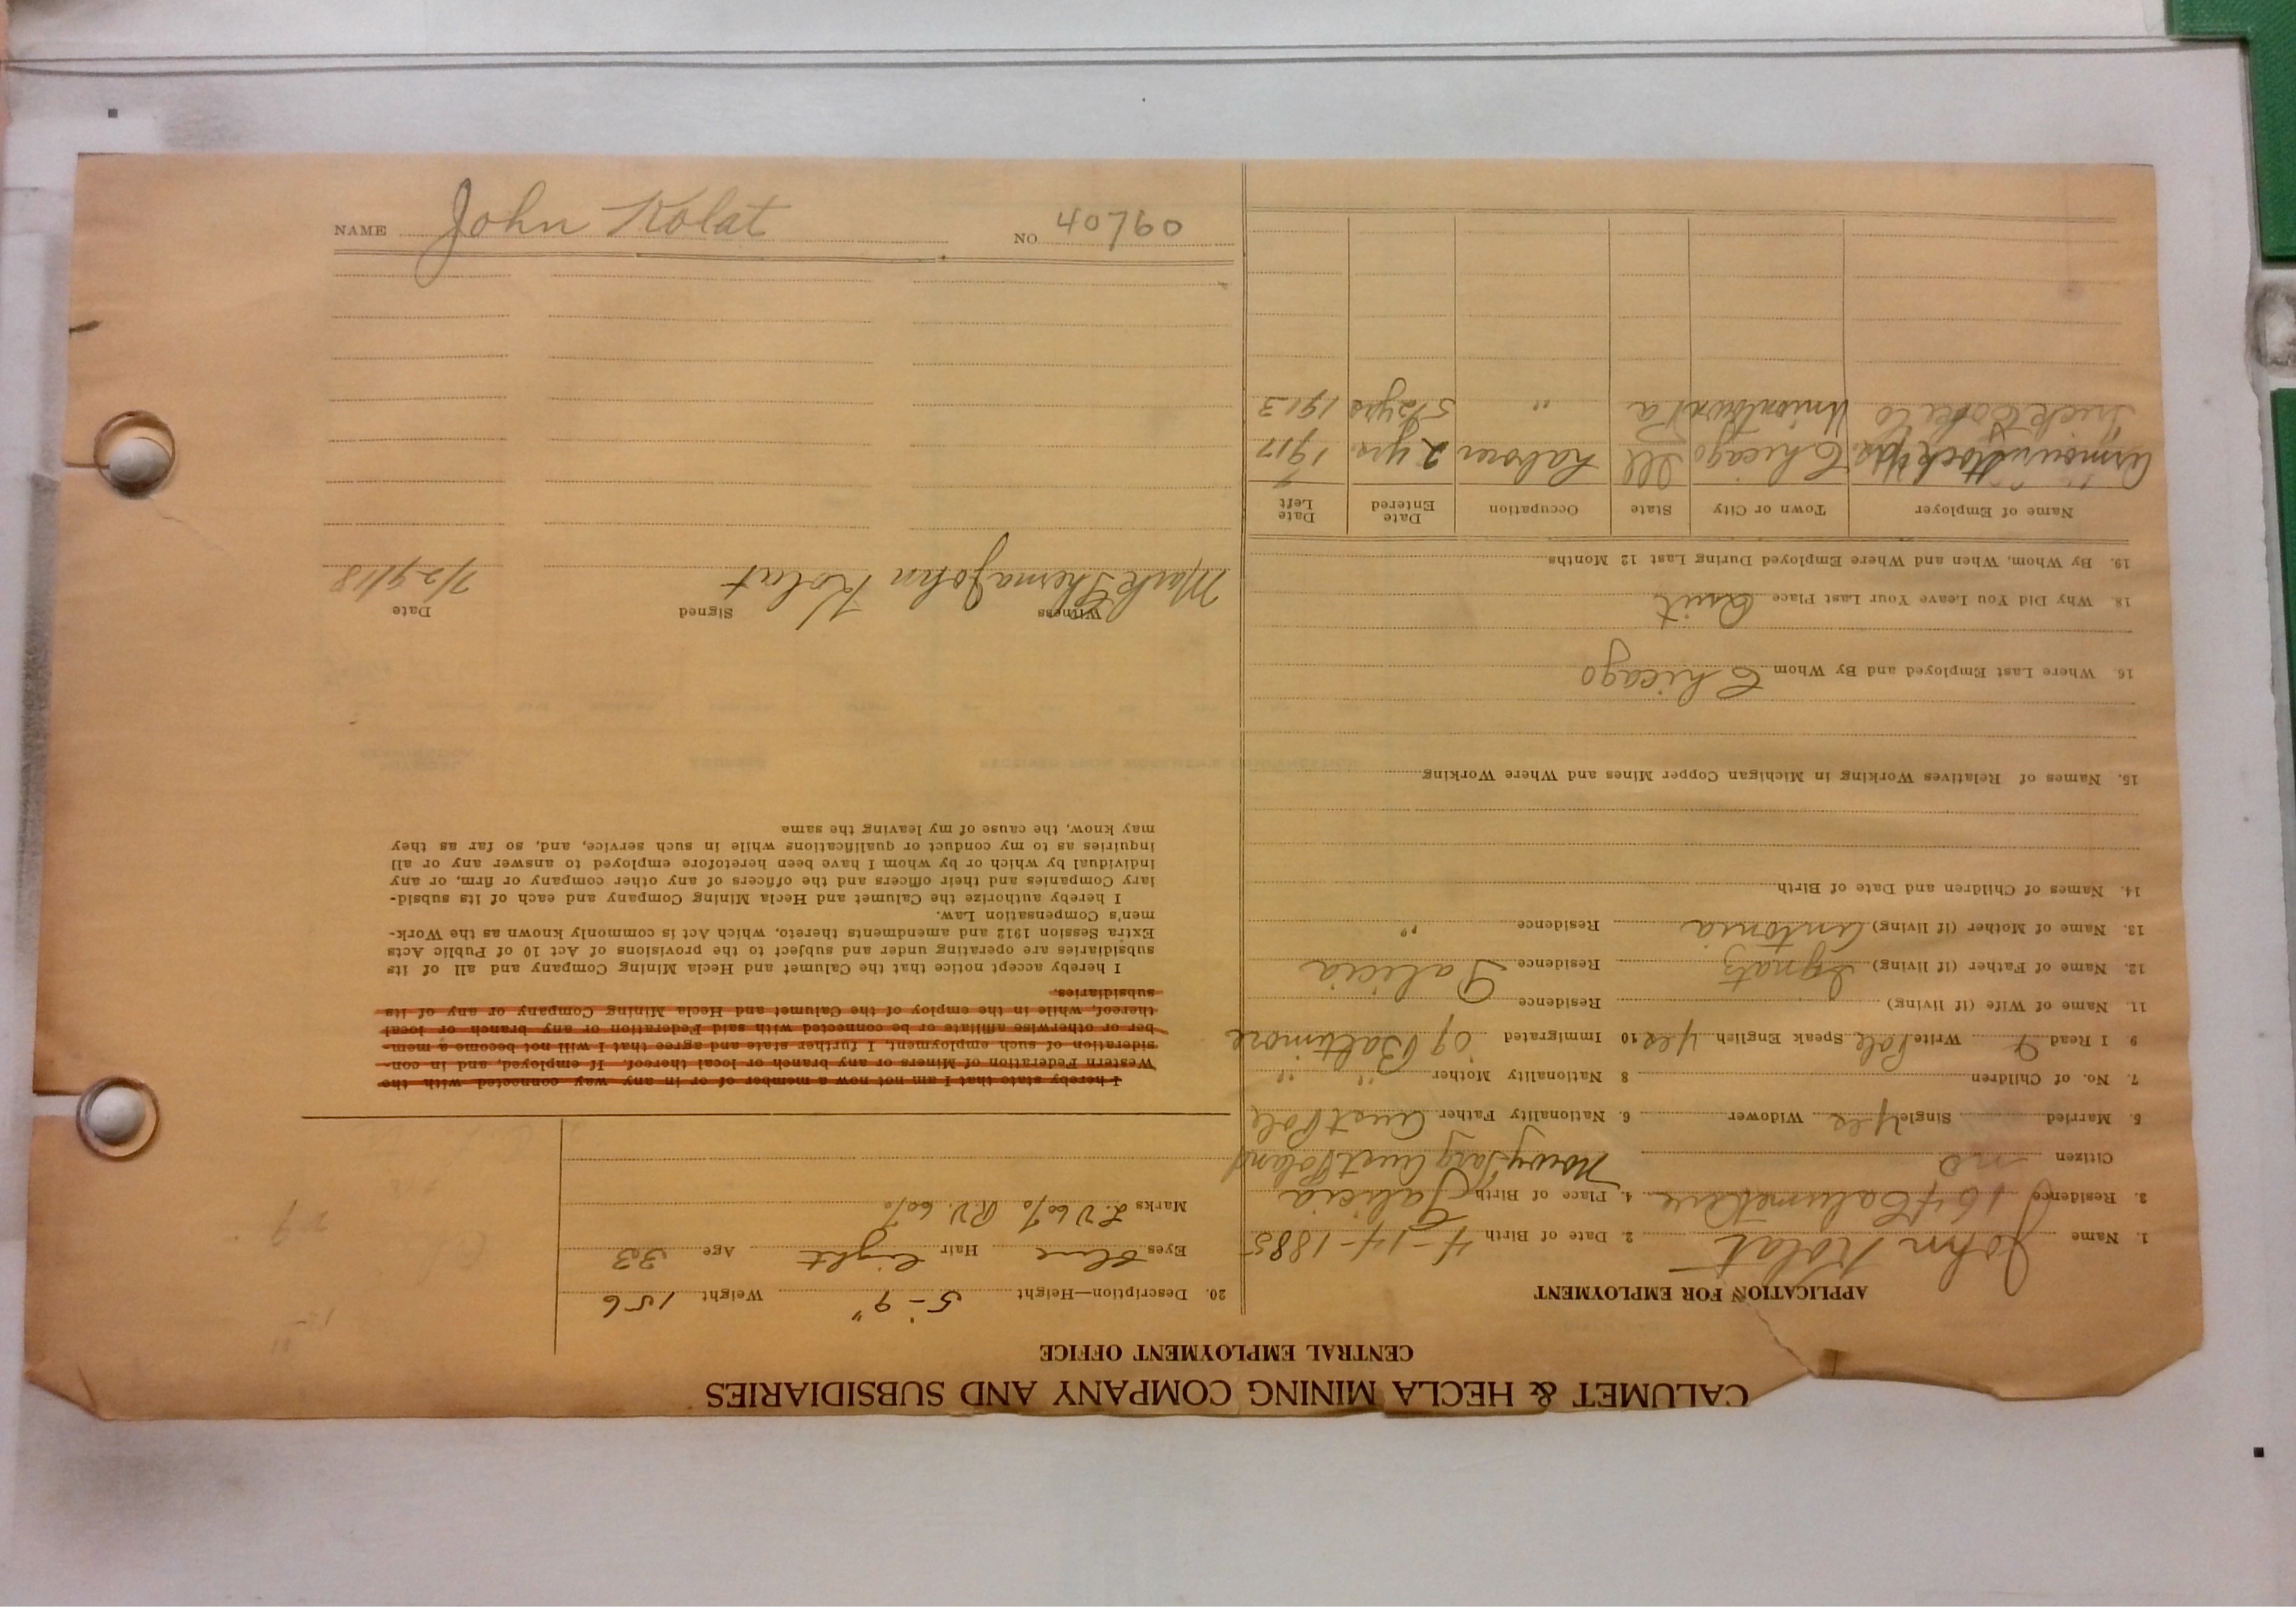 CALUMET & HECLA MINING COMPANY AND SUBSIDIARIES
CENTRAL EMPLOYMENT OFFICE
APPLICATION FOR EMPLOYMENT
1. Name John Kolat 2. Date of Birth 4-14-1885
3. Residence 164 Calumet Ave 4. Place of Birth Galicia
Citizen no Nowy Targ Aust Poland
5. Married Single Yes Widower 6. Nationality Father Aust Pole
7. No. of Children 8 Nationality Mother " "
9 I Read Write Pole Speak English Yes 10 Immigrated 09 Baltimore
11. Name of Wife (if living) Residence
12. Name of Father (if living) Ignatz Residence Galicia
13. Name of Mother (if living) Antonia Residence "
14. Names of Children and Date of Birth
15. Names of Relatives Working in Michigan Copper Mines and Where Working
16. Where Last Employed and By Whom Chicago
18. Why Did You Leave Your Last Place Quit
19. By Whom, When and Where Employed During Last 12 Months
Name of Employer Town or City State Occupation Date Entered Date Left
Armour Stock Yds. Chicago Ill Laborer 2 yrs. 1917
Frick Coke Co Uniontown Pa " 5 1/2 yrs 1913
20. Description—Height 5'-9" Weight 156
Eyes Blue Hair light Age 33
Marks L.V 60% R.V. 60%
I hereby state that I am not now a member of or in any way connected with the
Western Federation of Miners or any branch or local thereof. If employed, and in con-
sideration of such employment, I further state and agree that I will not become a mem-
ber or otherwise affiliate or be connected with said Federation or any branch or local
thereof, while in the employ of the Calumet and Hecla Mining Company or any of its
subsidiaries.
I hereby accept notice that the Calumet and Hecla Mining Company and all of its
subsidiaries are operating under and subject to the provisions of Act 10 of Public Acts
Extra Session 1912 and amendments thereto, which Act is commonly known as the Work-
men's Compensation Law.
I hereby authorize the Calumet and Hecla Mining Company and each of its subsid-
iary Companies and their officers and the officers of any other company or firm, or any
individual by which or by whom I have been heretofore employed to answer any or all
inquiries as to my conduct or qualifications while in such service, and, so far as they
may know, the cause of my leaving the same
Witness Signed Date
Mark John Kolat 7/29/18
NAME John Kolat NO 40760